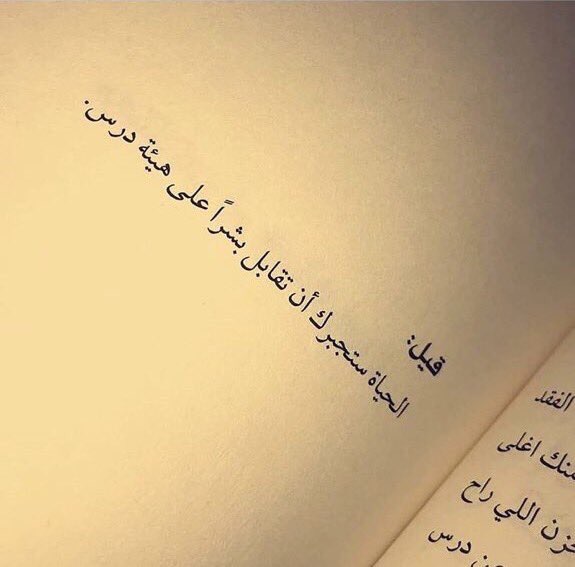 قيل:
الحياة ستجبرك أن تقابل بشراً على هيئة درس.
الفقد
اغلى
اللي راح
درس